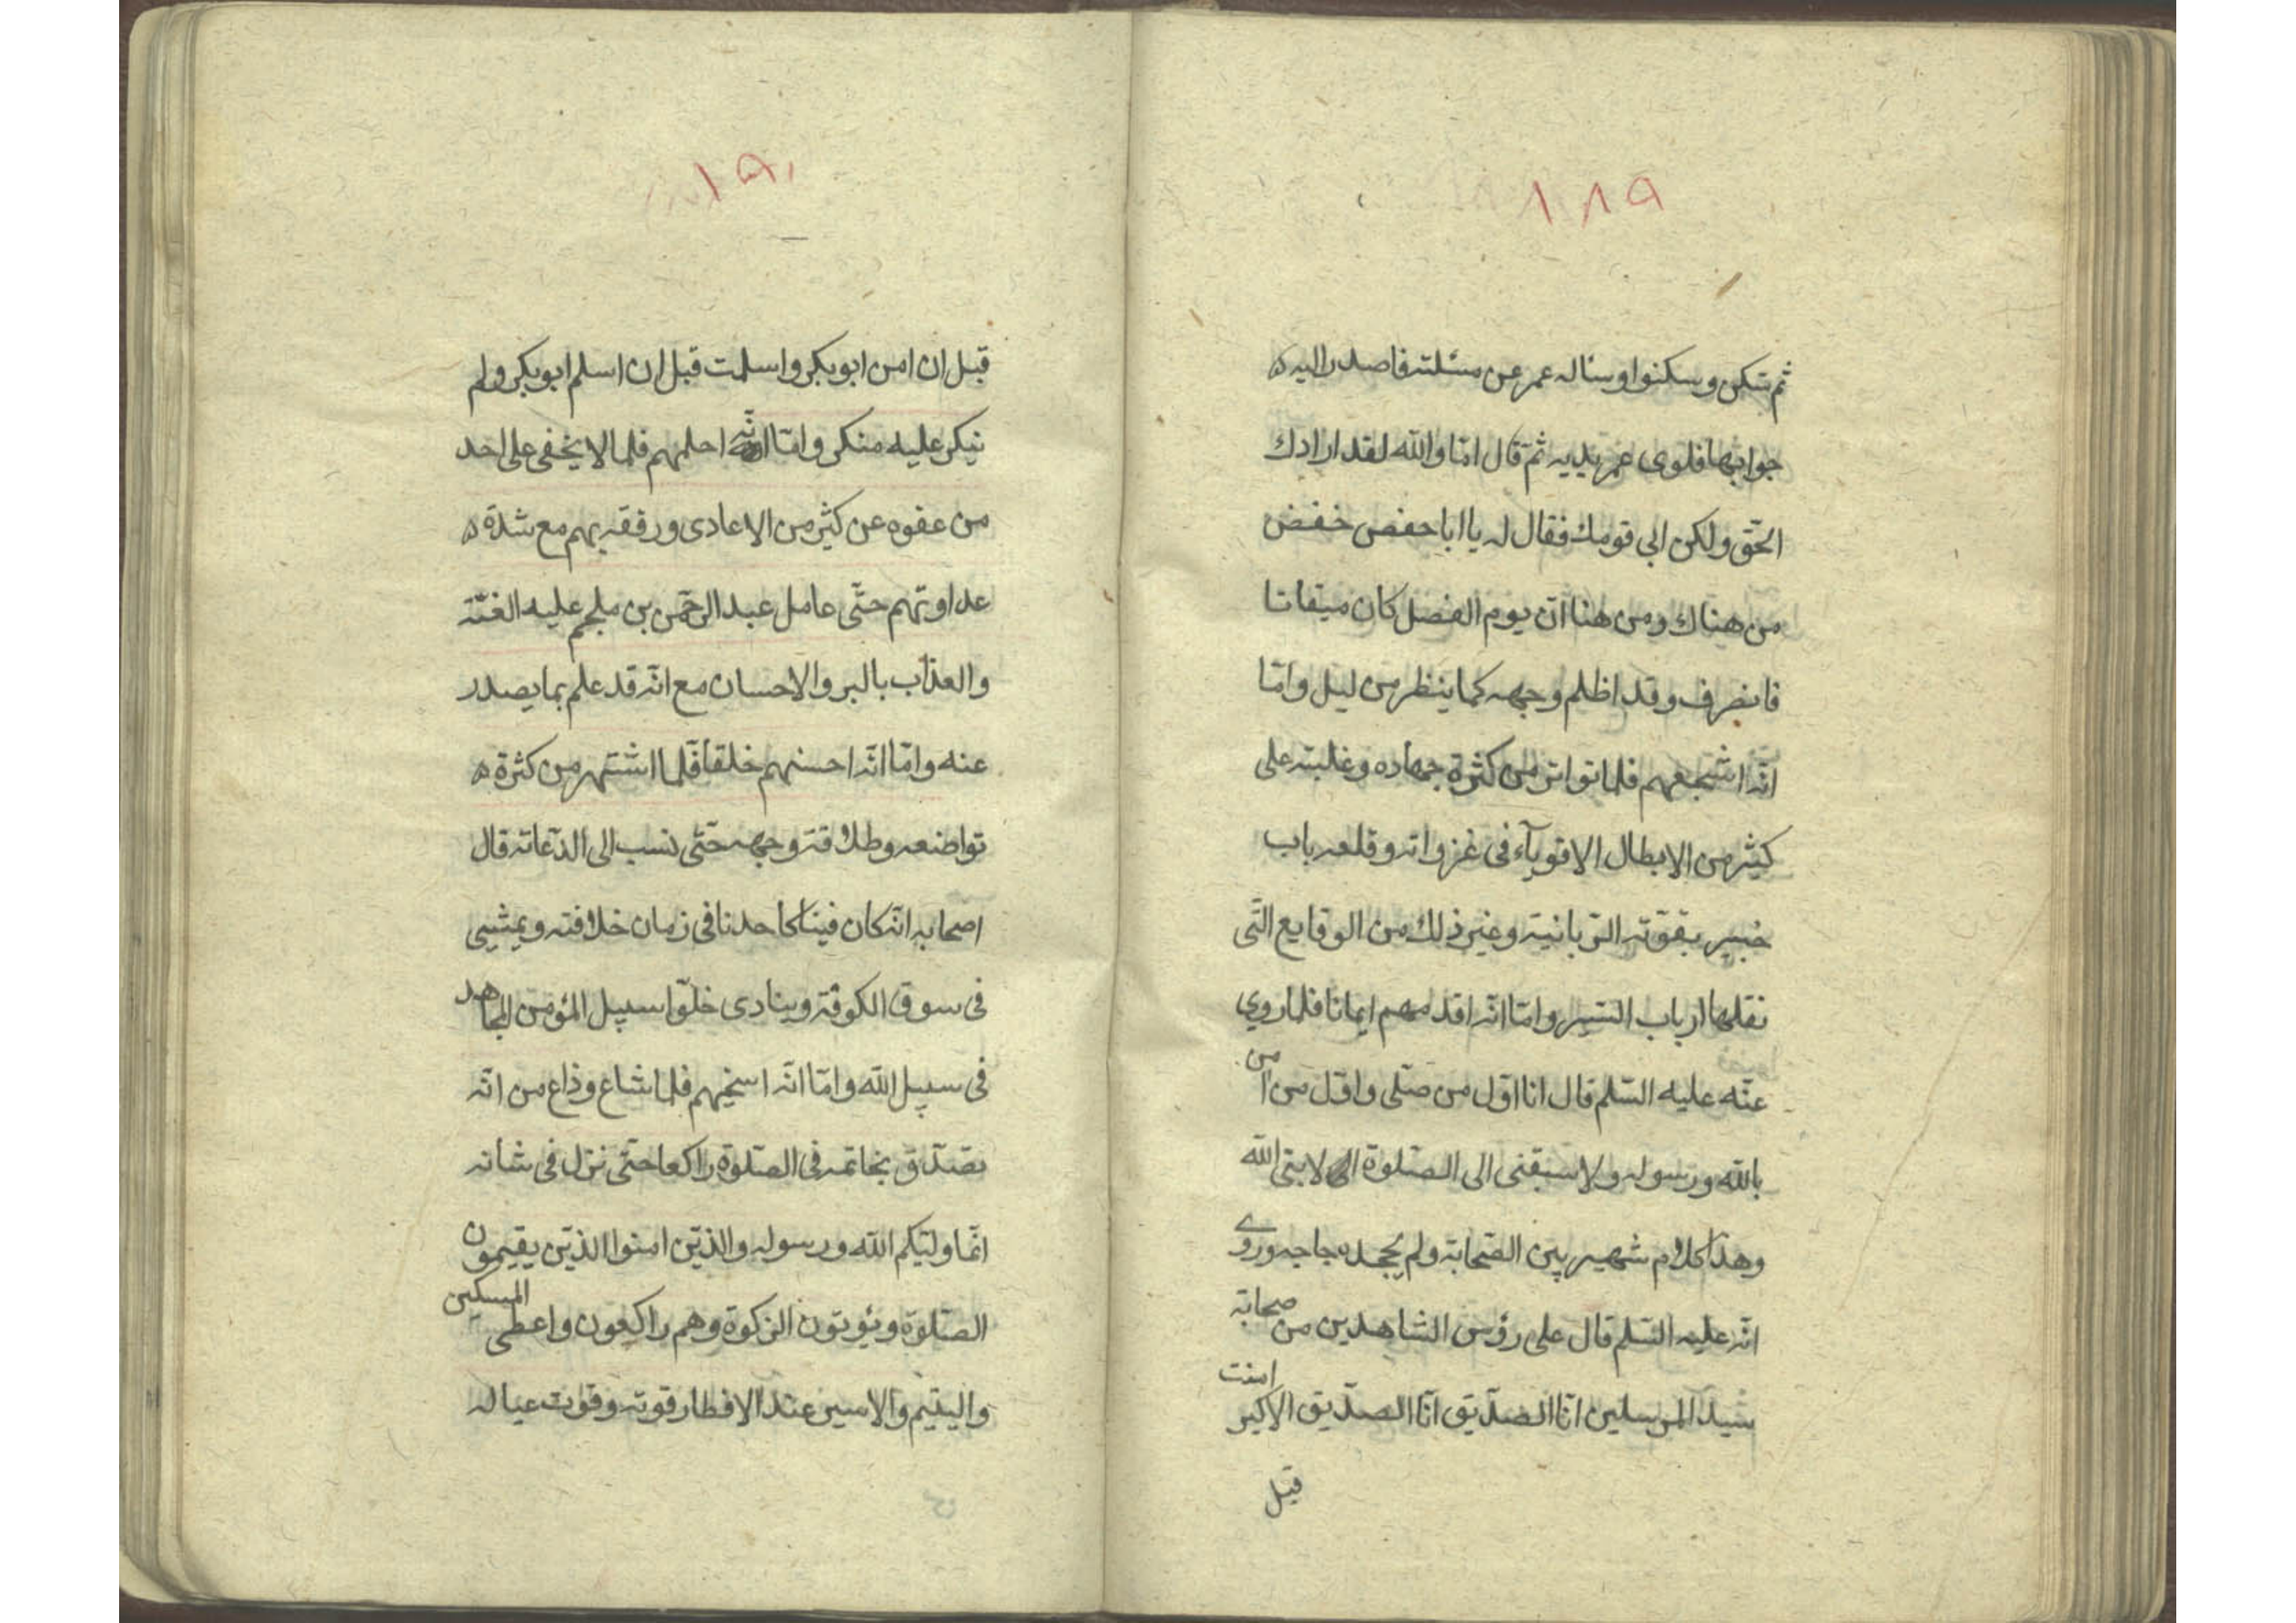 ١٨٩
ثم سكن وسكنوا وسأله عمر عن مسئلته فاصدر اليه
جوابها فلوى عمر يديه ثم قال امّا والله لقد ارادك
الحّق ولكن ابي قومك فقال له يا ابا حفص خفض
من هناك ومن هنا انّ يوم الفصل كان ميقاتا
فانصرف وقد اظلم وجهه كما ينظر من ليل وامّا
انّه اشجعهم فلما تواتر من كثرة جهاده وغلبته على
كثير من الابطال الاقويآء فى غزواته وقلعه باب
خيبر بقوّته الرّبانية وغير ذلك من الوقايع الّتى
نقلها ارباب السّير وامّا انّه اقدمهم ايمانا فلما روي
عنه عليه السّلم قال انا اوّل من صلّى واوّل من امن
بالله ورسوله ولا سبقنى الى الصّلوة الا نبىّ الله
وهذا كلام شهير بين الصّحابة ولم يجحده جاحد وروى
انّه عليه السّلم قال على رؤس الشاهدين من صحابة
سيّد المرسلين انا الصدّيق انا الصدّيق الاكبر امنت
قبل
١٩٠
قبل ان امن ابو بكر واسلمت قبل ان اسلم ابو بكر ولم
ينكر عليه منكر وامّا انّه احلمهم فلما لا يخفى على احد
من عفوه عن كثير من الاعادى ورفقه بهم مع شدّة
عداوتهم حتّى عامل عبد الرحمن بن ملجم عليه اللعنة
والعذاب بالبر والاحسان مع انّه قد علم بما يصدر
عنه وامّا انّه احسنهم خلقا فلما اشتهر من كثرة
تواضعه وطلاقة وجهه حتّى نسب الى الدّعابة قال
اصحابه انّه كان فينا كاحدنا فى زمان خلافته ويمشى
فى سوق الكوفة وينادى خلّوا سبيل المؤمن المجاهد
فى سبيل الله وامّا انّه اسخيهم فلما شاع وذاع من انّه
تصدّق بخاتمه فى الصّلوة راكعا حتّى نزل فى شانه
انّما وليّكم الله ورسوله والذين امنوا الذين يقيمون
الصّلوة ويؤتون الزكوة وهم راكعون واعطى المسكين
واليتيم والاسير عند الافطار قوته وقوت عياله